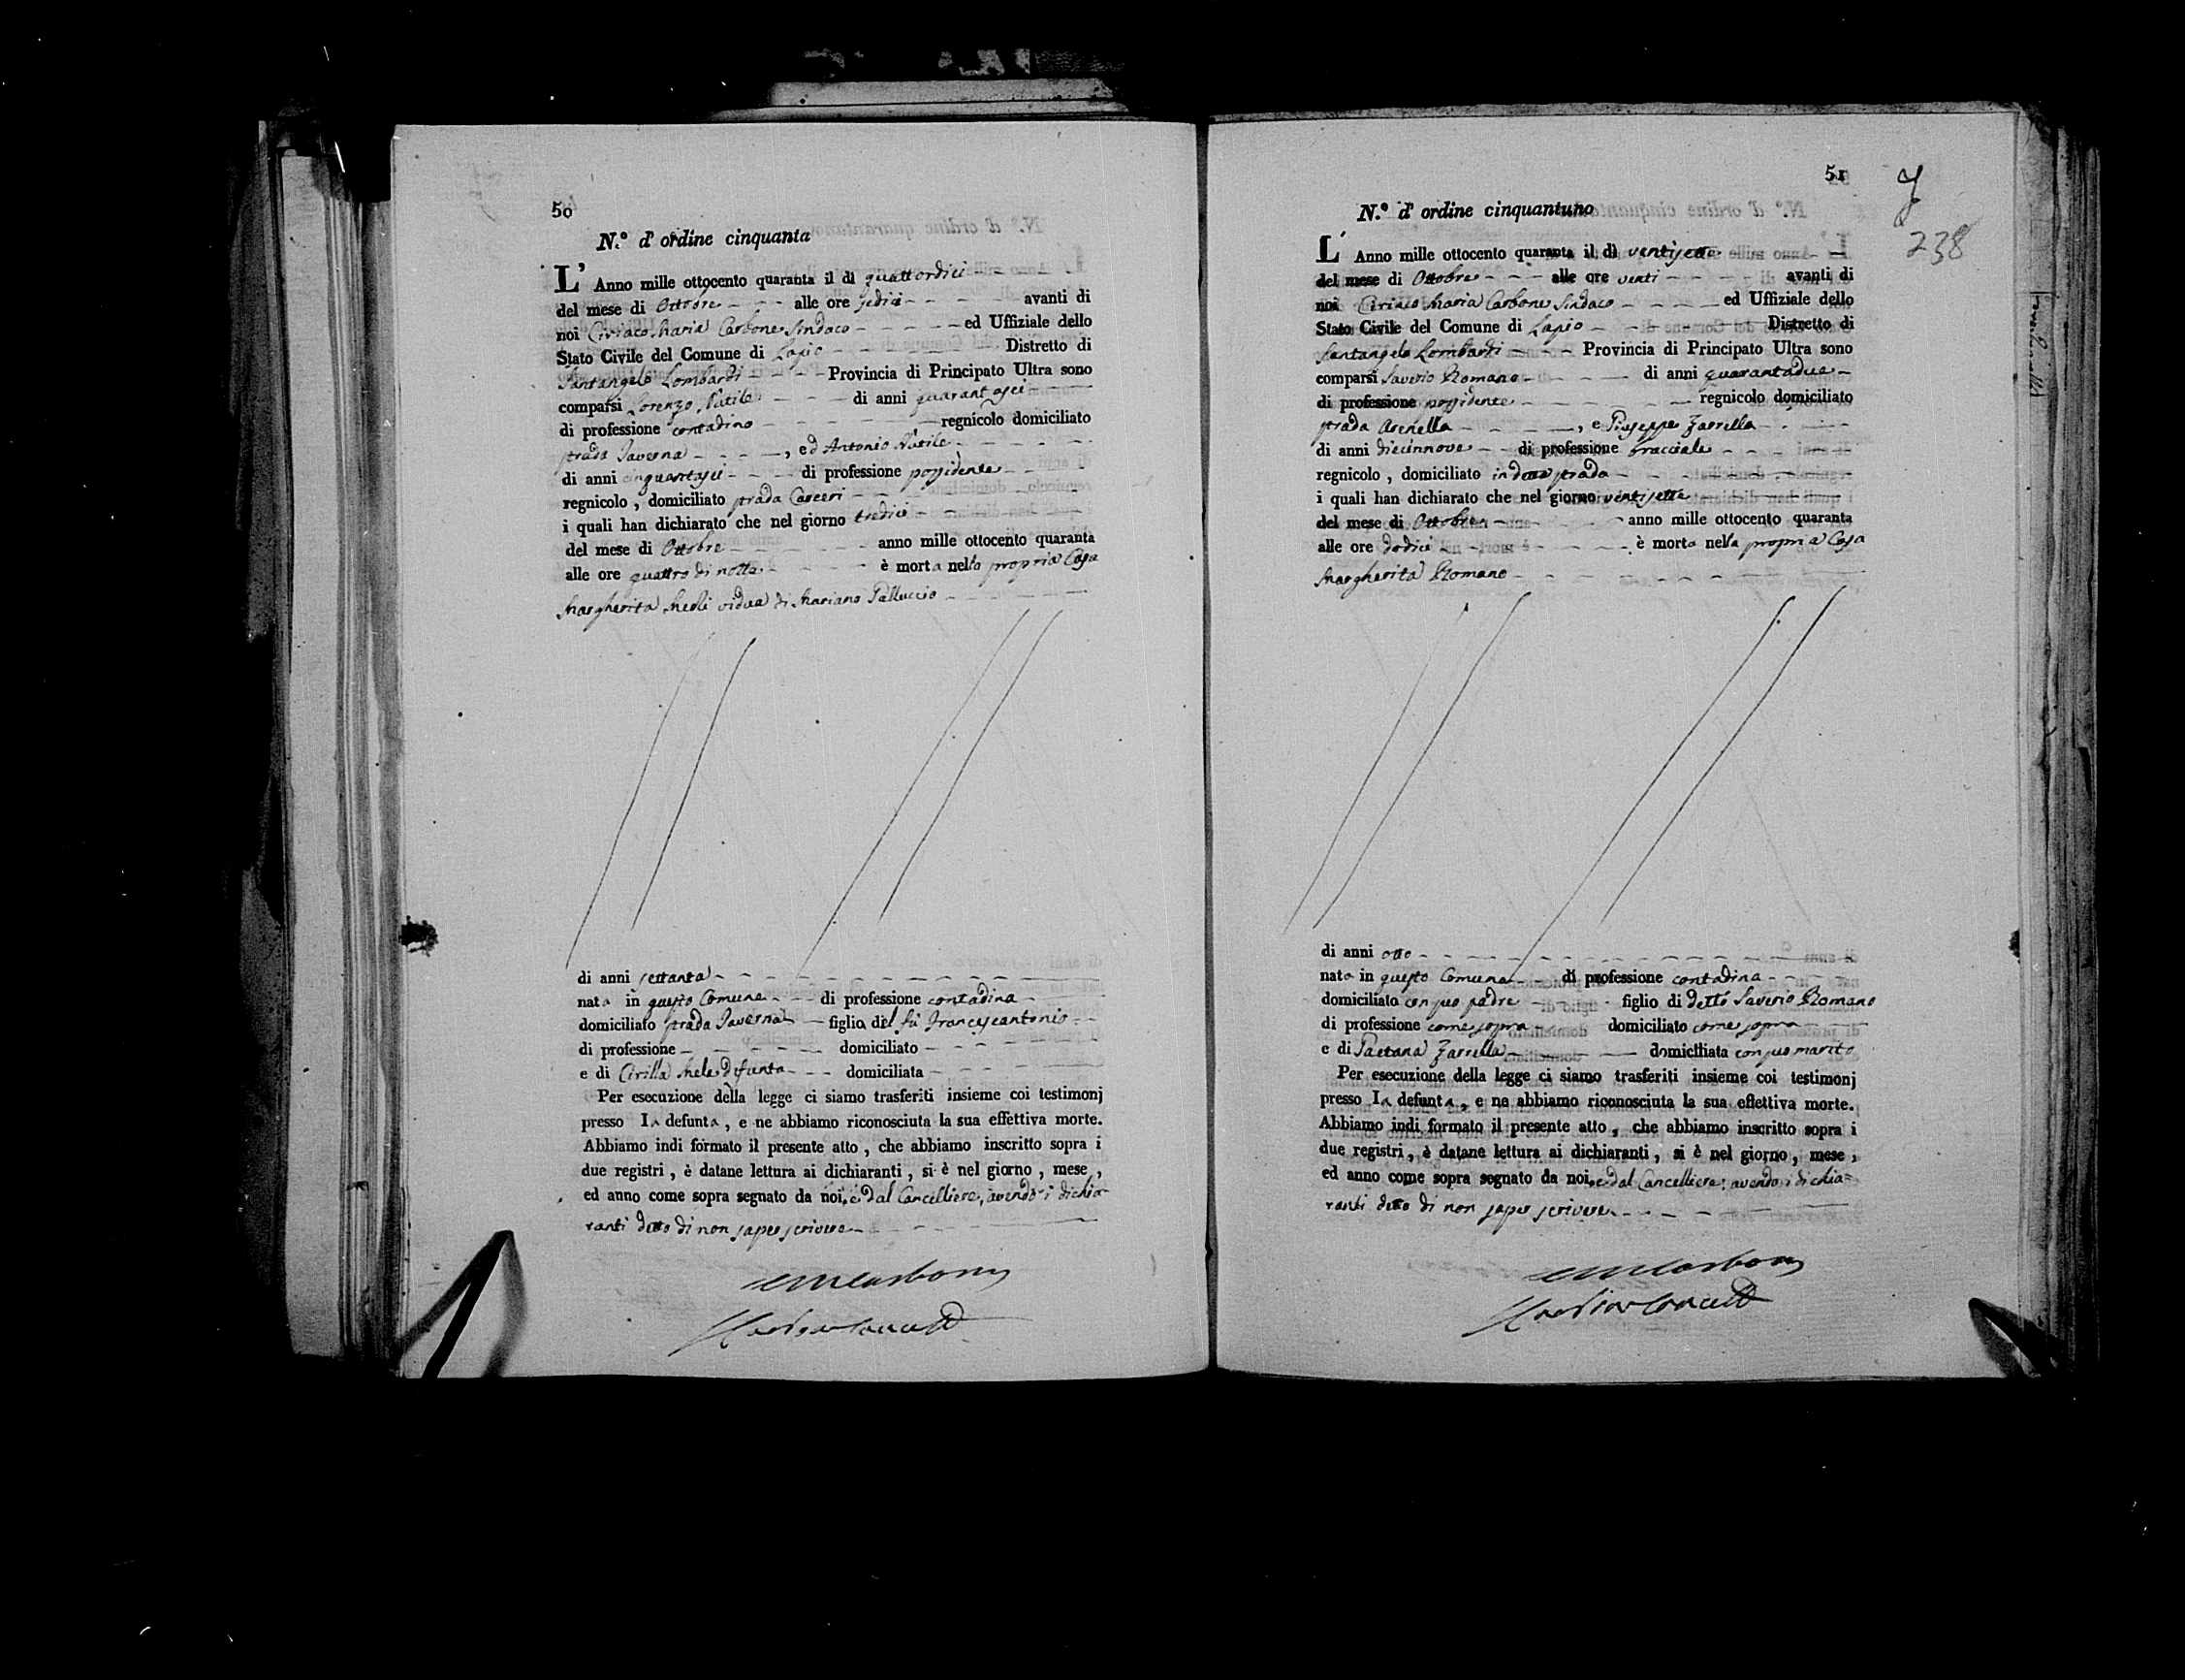 50
N.º d' ordine cinquanta
L' Anno mille ottocento quaranta il dì quattordici
del mese di Ottobre alle ore sedici avanti di
noi Ciriaco Maria Carbone Sindaco ed Uffiziale dello
Stato Civile del Comune di Lapio Distretto di
Santangelo Lombardi Provincia di Principato Ultra sono
comparsi Lorenzo Nutile di anni quarantasei
di professione contadino regnicolo domiciliato
strada Taverna , ed Antonio Nutile
di anni cinquantasei di professione possidente
regnicolo , domiciliato strada Carceri
i quali han dichiarato che nel giorno tredici
del mese di Ottobre anno mille ottocento quaranta
alle ore quattro di notte è morta nella propria Casa
Margherita Meoli vidua di Mariano Palluccio
di anni settanta
nata in questo Comune di professione contadina
domiciliato strada Taverna figlia del fù Francescantonio
di professione domiciliato
e di Cirilla Mele defunta domiciliata
Per esecuzione della legge ci siamo trasferiti insieme coi testimonj
presso la defunta , e ne abbiamo riconosciuta la sua effettiva morte.
Abbiamo indi formato il presente atto , che abbiamo inscritto sopra i
due registri , è datane lettura ai dichiaranti , si è nel giorno , mese ,
ed anno come sopra segnato da noi, e dal Cancelliere, avendo i dichia-
ranti detto di non saper scrivere
CMCarbone
51
238
N.º d' ordine cinquantuno
L' Anno mille ottocento quaranta il dì ventisette
del mese di Ottobre alle ore venti avanti di
noi Ciriaco Maria Carbone Sindaco ed Uffiziale dello
Stato Civile del Comune di Lapio Distretto di
Santangelo Lombardi Provincia di Principato Ultra sono
comparsi Saverio Romano di anni quarantadue
di professione possidente regnicolo domiciliato
strada Arenella , e Giuseppe Zarrella
di anni diecinnove di professione bracciale
regnicolo , domiciliato in detta strada
i quali han dichiarato che nel giorno ventisette
del mese di Ottobre anno mille ottocento quaranta
alle ore dodici è morta nella propria Casa
Margherita Romano
di anni otto
nata in questo Comune di professione contadina
domiciliato con suo padre figlio di detto Saverio Romano
di professione come sopra domiciliato come sopra
e di Gaetana Zarrella domiciliata con suo marito
Per esecuzione della legge ci siamo trasferiti insieme coi testimonj
presso la defunta , e ne abbiamo riconosciuta la sua effettiva morte.
Abbiamo indi formato il presente atto , che abbiamo inscritto sopra i
due registri , è datane lettura ai dichiaranti , si è nel giorno , mese ,
ed anno come sopra segnato da noi, e dal Cancelliere, avendo i dichia=
ranti detto di non saper scrivere
CMCarbone